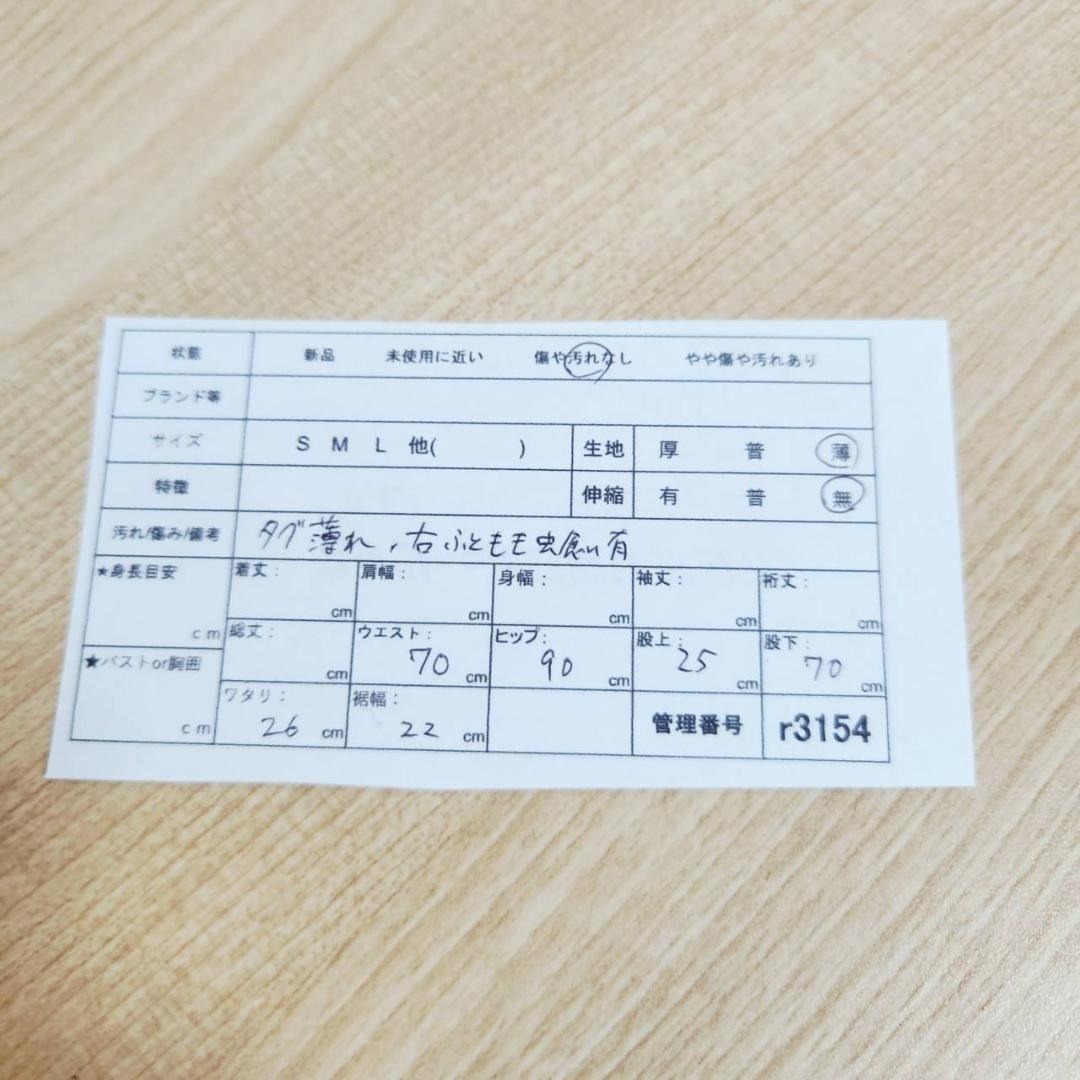 状態 新品 未使用に近い 傷や汚れなし やや傷や汚れあり
ブランド等
サイズ S M L 他( ) 生地 厚 普 薄
特徴 伸縮 有 普 無
汚れ/傷み/備考 タグ薄れ、右ふともも虫食い有
★身長目安 cm 着丈: cm 肩幅: cm 身幅: cm 袖丈: cm 裄丈: cm
総丈: cm ウエスト: 70 cm ヒップ: 90 cm 股上: 25 cm 股下: 70 cm
★バストor胸囲 cm ワタリ: 26 cm 裾幅: 22 cm 管理番号 r3154